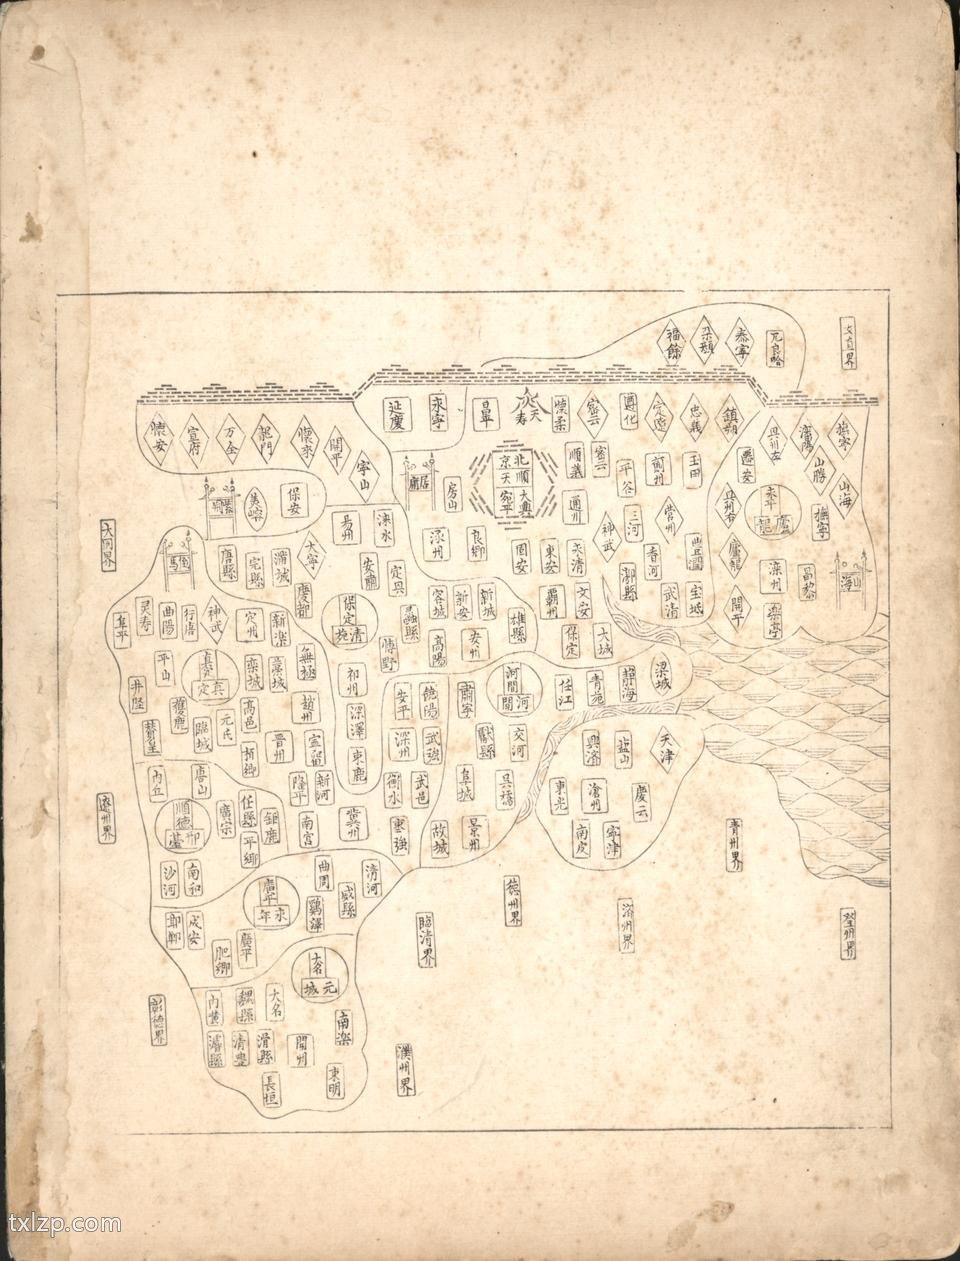 福餘
朵顏
泰寧
兀良哈
懷安
宣府
万全
龍門
懷來
開平
寧山
延慶
永寧
昌平
天壽
懷柔
密云
遵化
定遼
忠義
鎮朔
撫寧
山勝
山海
居庸
房山
北京
順天
大興
宛平
順義
密云
平谷
薊州
玉田
遷安
永平
盧龍
撫寧
保安
易州
淶水
涿州
良鄉
通州
三河
神武
營州
香河
漷縣
豐潤
盧龍
灤州
昌黎
山海
大同界
唐縣
完縣
蒲城
大寧
慶都
安肅
定興
固安
東安
永清
霸州
文安
武清
宝坻
開平
樂亭
阜平
灵寿
曲陽
行唐
神武
定州
新楽
保定
清苑
蠡縣
容城
新安
新城
雄縣
保定
大城
平山
真定
真定
欒城
藁城
無極
博野
高陽
安州
井陘
贊皇
獲鹿
臨城
元氏
高邑
栢鄉
趙州
晋州
祁州
深澤
束鹿
安平
饒陽
肅寧
河間
河間
任江
青苑
靜海
梁城
深州
武強
獻縣
交河
興濟
鹽山
天津
內丘
唐山
隆平
新河
衡水
武邑
阜城
吳橋
東光
滄州
慶云
遼州界
順德
廣宗
任縣
平鄉
鉅鹿
南宮
冀州
棗強
故城
景州
南皮
寧津
青州界
沙河
南和
廣平
永年
曲周
雞澤
威縣
清河
邯鄲
成安
肥鄉
廣平
臨清界
德州界
濟州界
大名
元城
彰德界
內黃
魏縣
大名
濬縣
清豊
滑縣
開州
南楽
長垣
東明
濮州界
txlzp.com